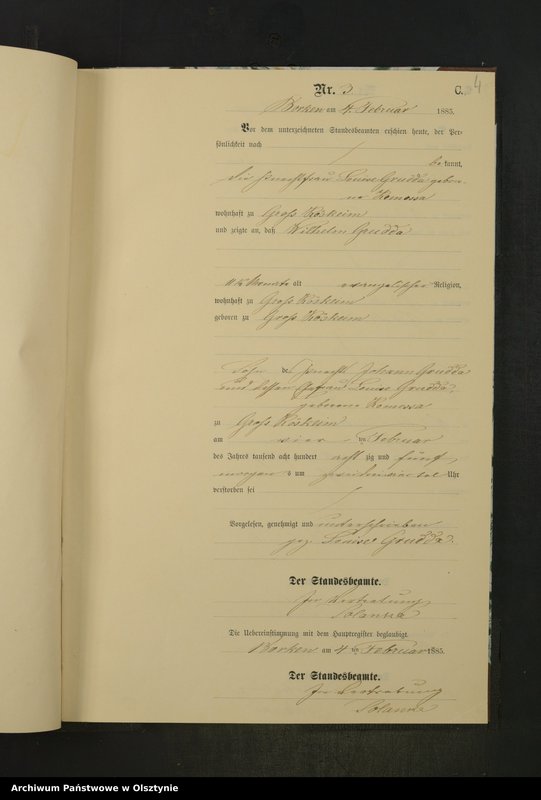 4
Nr. 3 C.
Borken am 4. Februar 1885.
Vor dem unterzeichneten Standesbeamten erschien heute, der Per-
sönlichkeit nach
be kannt,
die Knechtfrau Louise Grudda gebore-
ne Komossa
wohnhaft zu Groß Köskeim
und zeigte an, daß Wilhelm Grudda
Monate alt evangelischer Religion,
wohnhaft zu Groß Kösteim
geboren zu Groß Kösteim
Sohn des Knecht Johann Grudda
und dessen Ehefrau Louise Grudda
geborene Komossa
zu Groß Kösteim
am vier ten Februar
des Jahres tausend acht hundert acht zig und fünf
morgens um Uhr
verstorben sei
Vorgelesen, genehmigt und unterschrieben
gez. Louise Grudda.
Der Standesbeamte.
In Vertretung
Die Uebereinstimmung mit dem Hauptregister beglaubigt.
Borken am 4 ten Februar 1885.
Der Standesbeamte.
In Vertretung
Archiwum Państwowe w Olsztynie